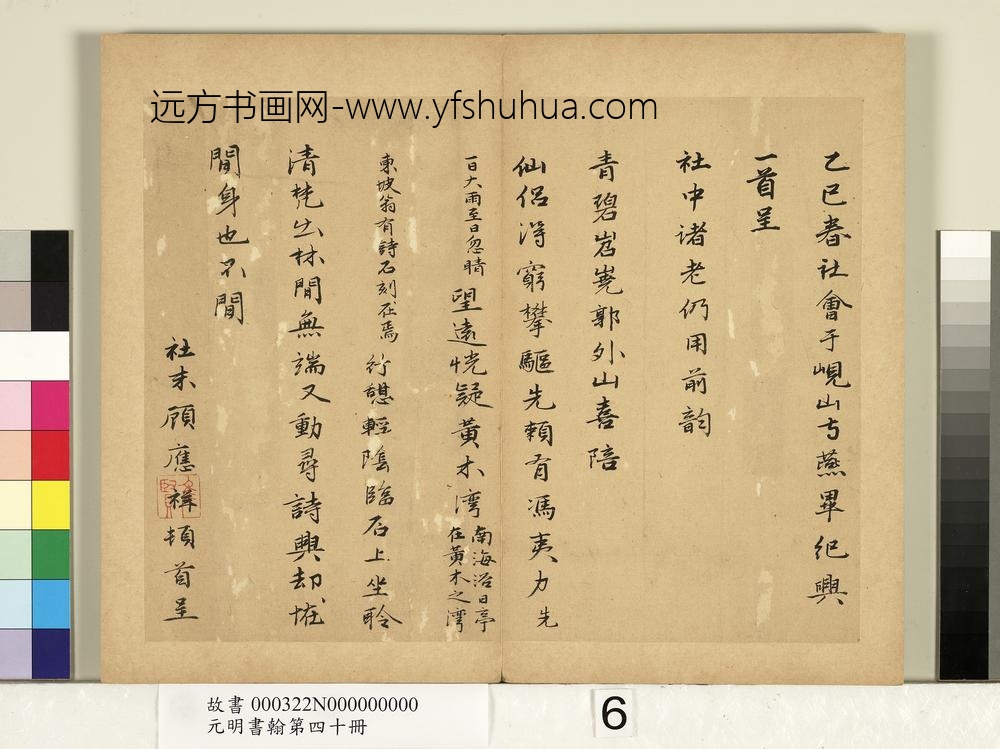 远方书画网-www.yfshuhua.com
乙巳春社會于峴山寺燕畢紀興
一首呈
社中諸老仍用前韵
青碧岧嶤郭外山喜陪
仙侶得窮攀驅先賴有馮夷力先
一日大雨至日忽晴望遠恍疑黃木灣南海浴日亭
在黃木之灣
東坡翁有詩石刻在焉行憩輕陰臨石上坐聆
清梵出林間無端又動尋詩興却恠
閒身也不閒
社末顧應祥頓首呈
故書 000322N000000000
元明書翰第四十冊
6